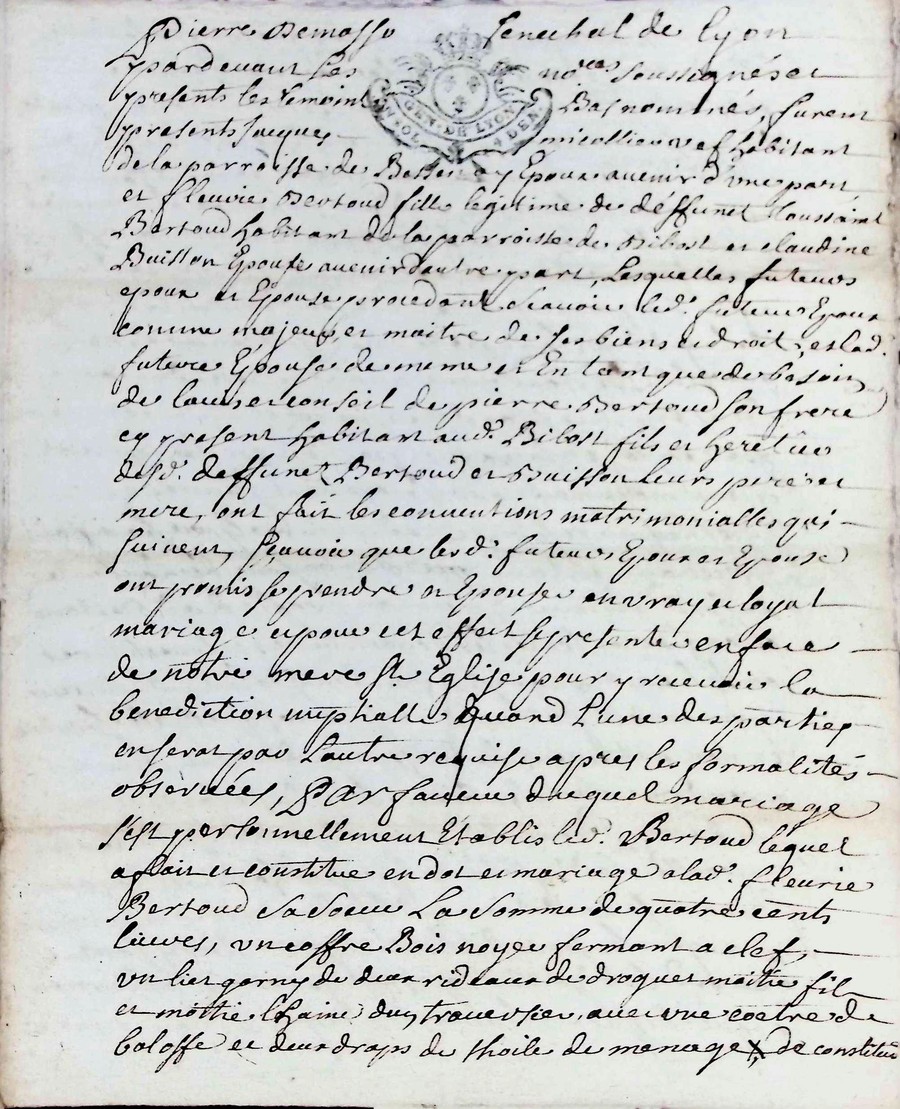 Pierre Demasso senechal de Lyon
pardevant Les no.res soussignés et
presents les temoins Bas nommés, furent
GEN. DE LYON
presents Jacques micollier vef habitant
de la parroisse de Epoux avenir d'une part
et fleurie Bertoud fille legitime de deffunct toussaint
Bertoud habitant de la parroisse de Bibost et claudine
Buisson Epouse avenir dautre part, Lesquelles futeurs
epoux et Epouse procedant scavoir led. futeur Epoux
comme majeur, et maitre de ses biens et droits, et lad.
futeure Epouse de meme et En tant que de besoin
de lavis et conseil de pierre Bertoud son frere
cy present habitant aud. Bibost fils et heretier
desd. deffunct Bertoud et Buisson leurs pere et
mere, ont fait les conventions matrimonialles qui
suivent, scavoir que lesd. futeurs Epoux et Epouse
ont promis se prendre et Epouser en vray et loyal
mariage et pour cet effect se presenter en face
de notre mere ste Eglise pour y recevoir la
benediction nuptialle quand Lune des parties
en serat par Lautre requise apres les formalités
observées, Par faveur duquel mariage
s'est personnellement Etablis led. Bertoud lequel
a fait et constitue en dot et mariage a lad. fleurie
Bertoud sa soeur La somme de quatre cents
livres, un coffre Bois noyer fermant a clef,
un lict garny de deux rideaux de droguet moitié fil
et moitié Laine, du traversier, avec une coetre de
baloffe et deux draps de thoile de menage, de constitue